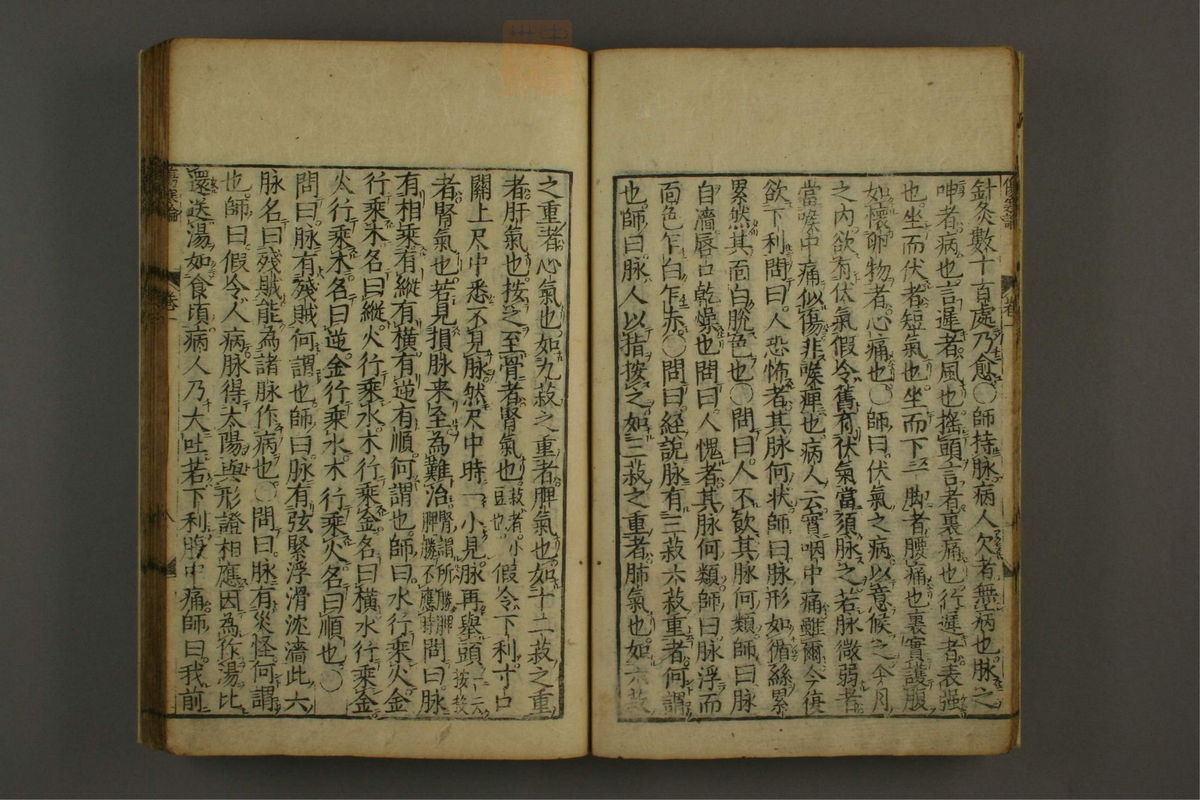 傷寒論 卷一
針灸數十百處乃愈○師持脉病人欠者無病也脉之
呻者病也言遲者風也搖頭言者裏痛也行遲者表强
也坐而伏者短氣也坐而下一脚者腰痛也裏實護腹
如懷卵物者心痛也○師曰伏氣之病以意候之今月
之內欲有伏氣假令舊有伏氣當須脉之若脉微弱者
當喉中痛似傷非喉痺也病人云實咽中痛雖爾今復
欲下利問曰人恐怖者其脉何狀師曰脉形如循絲累
累然其面白脫色也○問曰人不飲其脉何類師曰脉
自濇唇口乾燥也問曰人愧者其脉何類師曰脉浮而
面色乍白乍赤○問曰經說脉有三菽六菽重者何謂
也師曰脉人以指按之如三菽之重者肺氣也如六菽
之重者心氣也如九菽之重者脾氣也如十二菽之重
者肝氣也按之至骨者腎氣也菽者小豆也假令下利寸口
關上尺中悉不見脉然尺中時一小見脉再舉頭一云按投
者腎氣也若見損脉來至為難治腎謂所勝脾脾勝不應時問曰脉
有相乘有縱有橫有逆有順何謂也師曰水行乘火金
行乘木名曰縱火行乘水木行乘金名曰橫水行乘金
火行乘木名曰逆金行乘水木行乘火名曰順也○
問曰脉有殘賊何謂也師曰脉有弦緊浮滑沈濇此六
脉名曰殘賊能為諸脉作病也○問曰脉有災怪何謂
也師曰假令人病脉得太陽與形證相應因為作湯比
還送湯如食頃病人乃大吐若下利腹中痛師曰我前
卷一 八